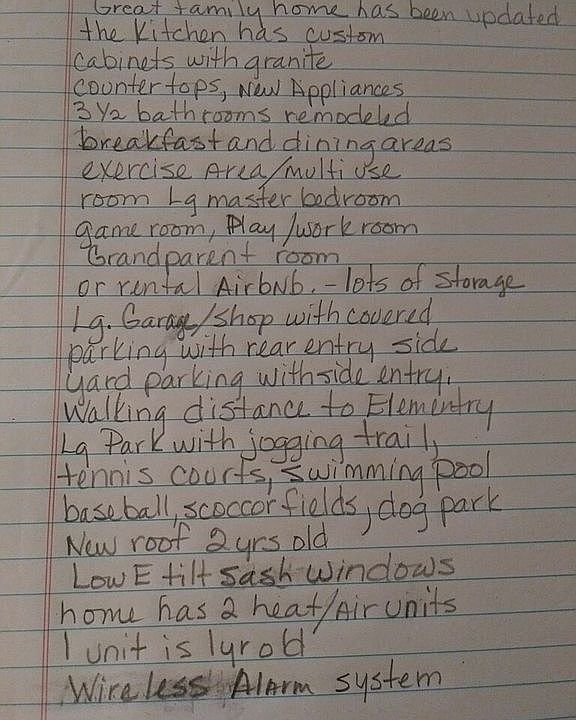 Great family home has been updated
the Kitchen has custom
cabinets with granite
countertops, New Appliances
3 1/2 bathrooms remodeled
breakfast and dining areas
exercise Area/multi use
room Lg master bedroom
game room, Play/work room
Grandparent room
or rental AirbNb. - lots of Storage
Lg. Garage/Shop with covered
parking with rear entry side
yard parking with side entry.
Walking distance to Elementry
Lg Park with jogging trail,
tennis courts, swimming pool
baseball, scoccor fields, dog park
New roof 2 yrs old
Low E tilt sash windows
home has 2 heat/Air units
1 unit is 1 yr old
Wireless Alarm system